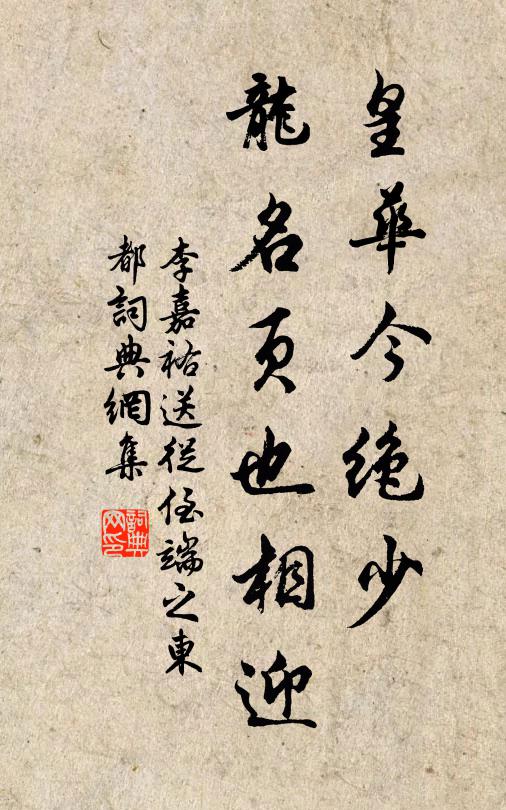 皇華今絶少
龍名頁也相迎
李嘉祐送從侄端之東
都詞典網集
詞典
网印